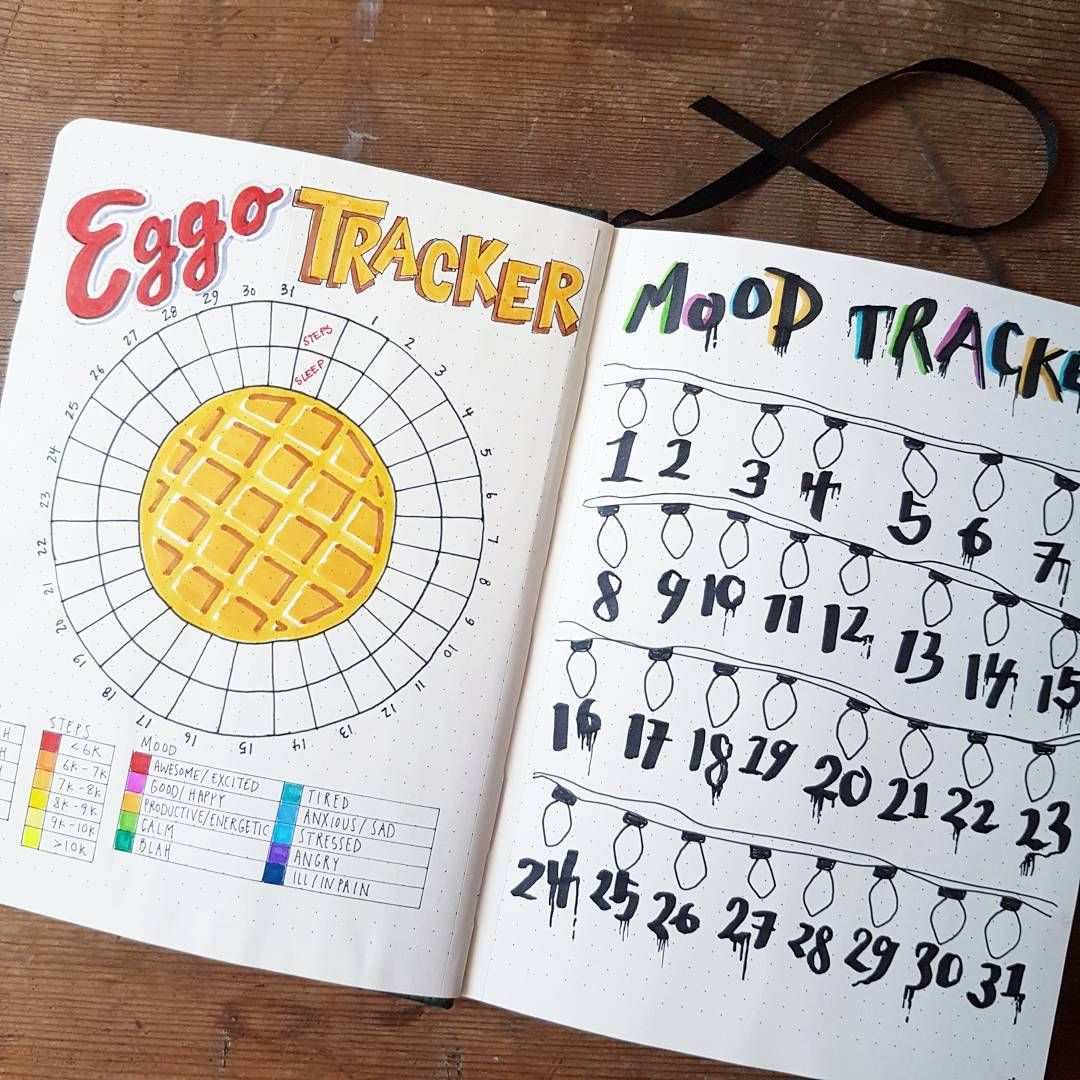 Eggo TRACKER
31
30
29
28
27
26
25
24
23
22
21
20
19
18
17
16
15
14
13
12
11
10
9
8
7
6
5
4
3
2
1
STEPS
SLEEP
H
H
STEPS
<6K
6K-7K
7K-8K
8K-9K
9K-10K
>10K
MOOD
AWESOME/EXCITED
GOOD/HAPPY
PRODUCTIVE/ENERGETIC
CALM
BLAH
TIRED
ANXIOUS/SAD
STRESSED
ANGRY
ILL/IN PAIN
MOOD TRACKE
1 2 3 4 5 6 7
8 9 10 11 12 13 14 15
16 17 18 19 20 21 22 23
24 25 26 27 28 29 30 31